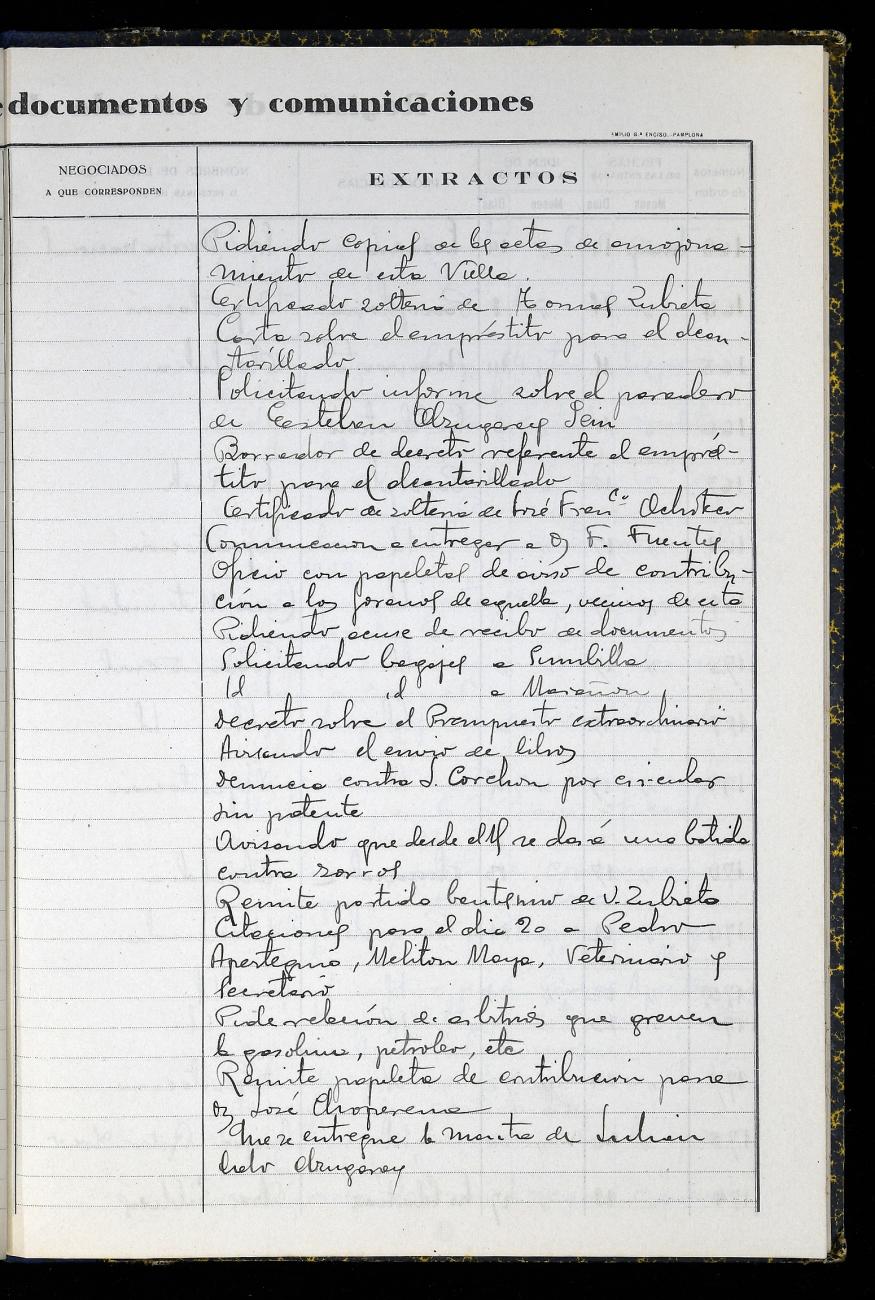 e documentos y comunicaciones
EMILIO G.ª ENCISO.-PAMPLONA
NEGOCIADOS
A QUE CORRESPONDEN
EXTRACTOS
Pidiendo copias de las actas de amojona-
miento de esta Villa.
Certificado soltería de Tomas Zubieta
Carta sobre el empréstito para el alcan-
tarillado
Solicitando informe sobre el paradero
de Esteban Sein
Borrador de decreto referente al empré-
tito para el alcantarillado
Certificado de soltería de José Franco Ochoteco
Comunicacion a entregar a F. Fuentes
Oficio con papeletas de aviso de contribu-
ción a los foranos de aquella, vecinos de esta
Pidiendo acuse de recibo de documentos
Solicitando bagajes a Sumbilla
Id id a Marañon
Decreto sobre el Presupuesto extraordinario
Avisando el envio de libros
Denuncia contra J. Corchon por circular
sin patente
Avisando que desde el se dará una batida
contra zorros
Remite partida bautismo de V. Zubieta
Citaciones para el dia 20 a Pedro
Apesteguia, Meliton Maya, Veterinario y
Secretario
Pide relación de arbitrios que graven
la gasolina, petroleo, etc
Remite papeleta de contribucion para
José Choperena
Que se entregue la a Julian